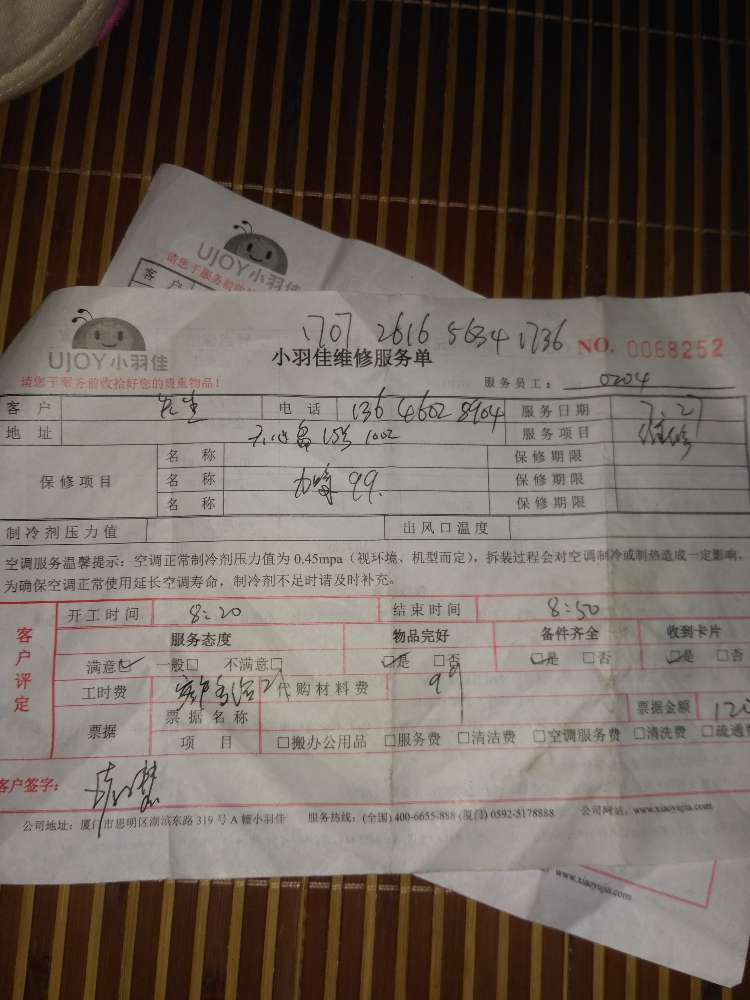 UJOY小羽佳
请您于服务前收拾好
客户
UJOY小羽佳
1707 2616 5634 1736
小羽佳维修服务单
NO. 0068252
请您于服务前收拾好您的贵重物品！
服务员工： 0204
客户 先生 电话 136 4602 8904 服务日期 7.27
地址 15号 1002 服务项目 维修
保修项目 名称 保修期限
名称 99. 保修期限
名称 保修期限
制冷剂压力值 出风口温度
空调服务温馨提示：空调正常制冷剂压力值为 0.45mpa（视环境、机型而定），拆装过程会对空调制冷或制热造成一定影响，
为确保空调正常使用延长空调寿命，制冷剂不足时请及时补充。
客户评定
开工时间 8:20 结束时间 8:50
服务态度 物品完好 备件齐全 收到卡片
满意☑ 一般□ 不满意□ ☑是 □否 ☑是 □否 ☑是 □否
工时费 21 代购材料费 99
票据 票据名称 票据金额 120
项目 □搬办公用品 □服务费 □清洁费 □空调服务费 □清洗费 □疏通费
客户签字：
公司地址：厦门市思明区湖滨东路 319 号 A 幢小羽佳 服务热线：(全国) 400-6655-888 (厦门) 0592-5178888 公司网站：www.xiaoyujia.com
www.xiaoyujia.com